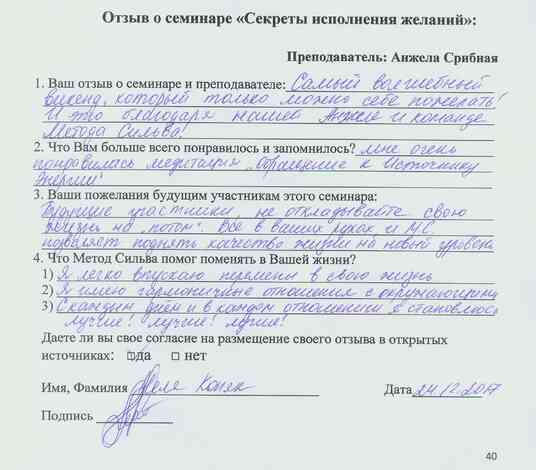 Отзыв о семинаре «Секреты исполнения желаний»:
Преподаватель: Анжела Срибная
1. Ваш отзыв о семинаре и преподавателе: Самый волшебный
викенд, который только можно себе пожелать!
И это благодаря нашей Анжеле и команде
Метода Сильва!
2. Что Вам больше всего понравилось и запомнилось? мне очень
понравилась медитация „Обращение к Источнику
Энергии"
3. Ваши пожелания будущим участникам этого семинара:
Будущие участники, не откладывайте свою
жизнь на „потом". Все в ваших руках и МС
позволяет поднять качество жизни на новый уровень
4. Что Метод Сильва помог поменять в Вашей жизни?
1) Я легко впускаю перемены в свою жизнь
2) Я имею гармоничные отношения с окружающими
3) С каждым днём и в каждом отношении я становлюсь
лучше! лучше! лучше!
Даете ли вы свое согласие на размещение своего отзыва в открытых
источниках: да □ нет
Имя, Фамилия
Дата 24.12.2017
Подпись
40